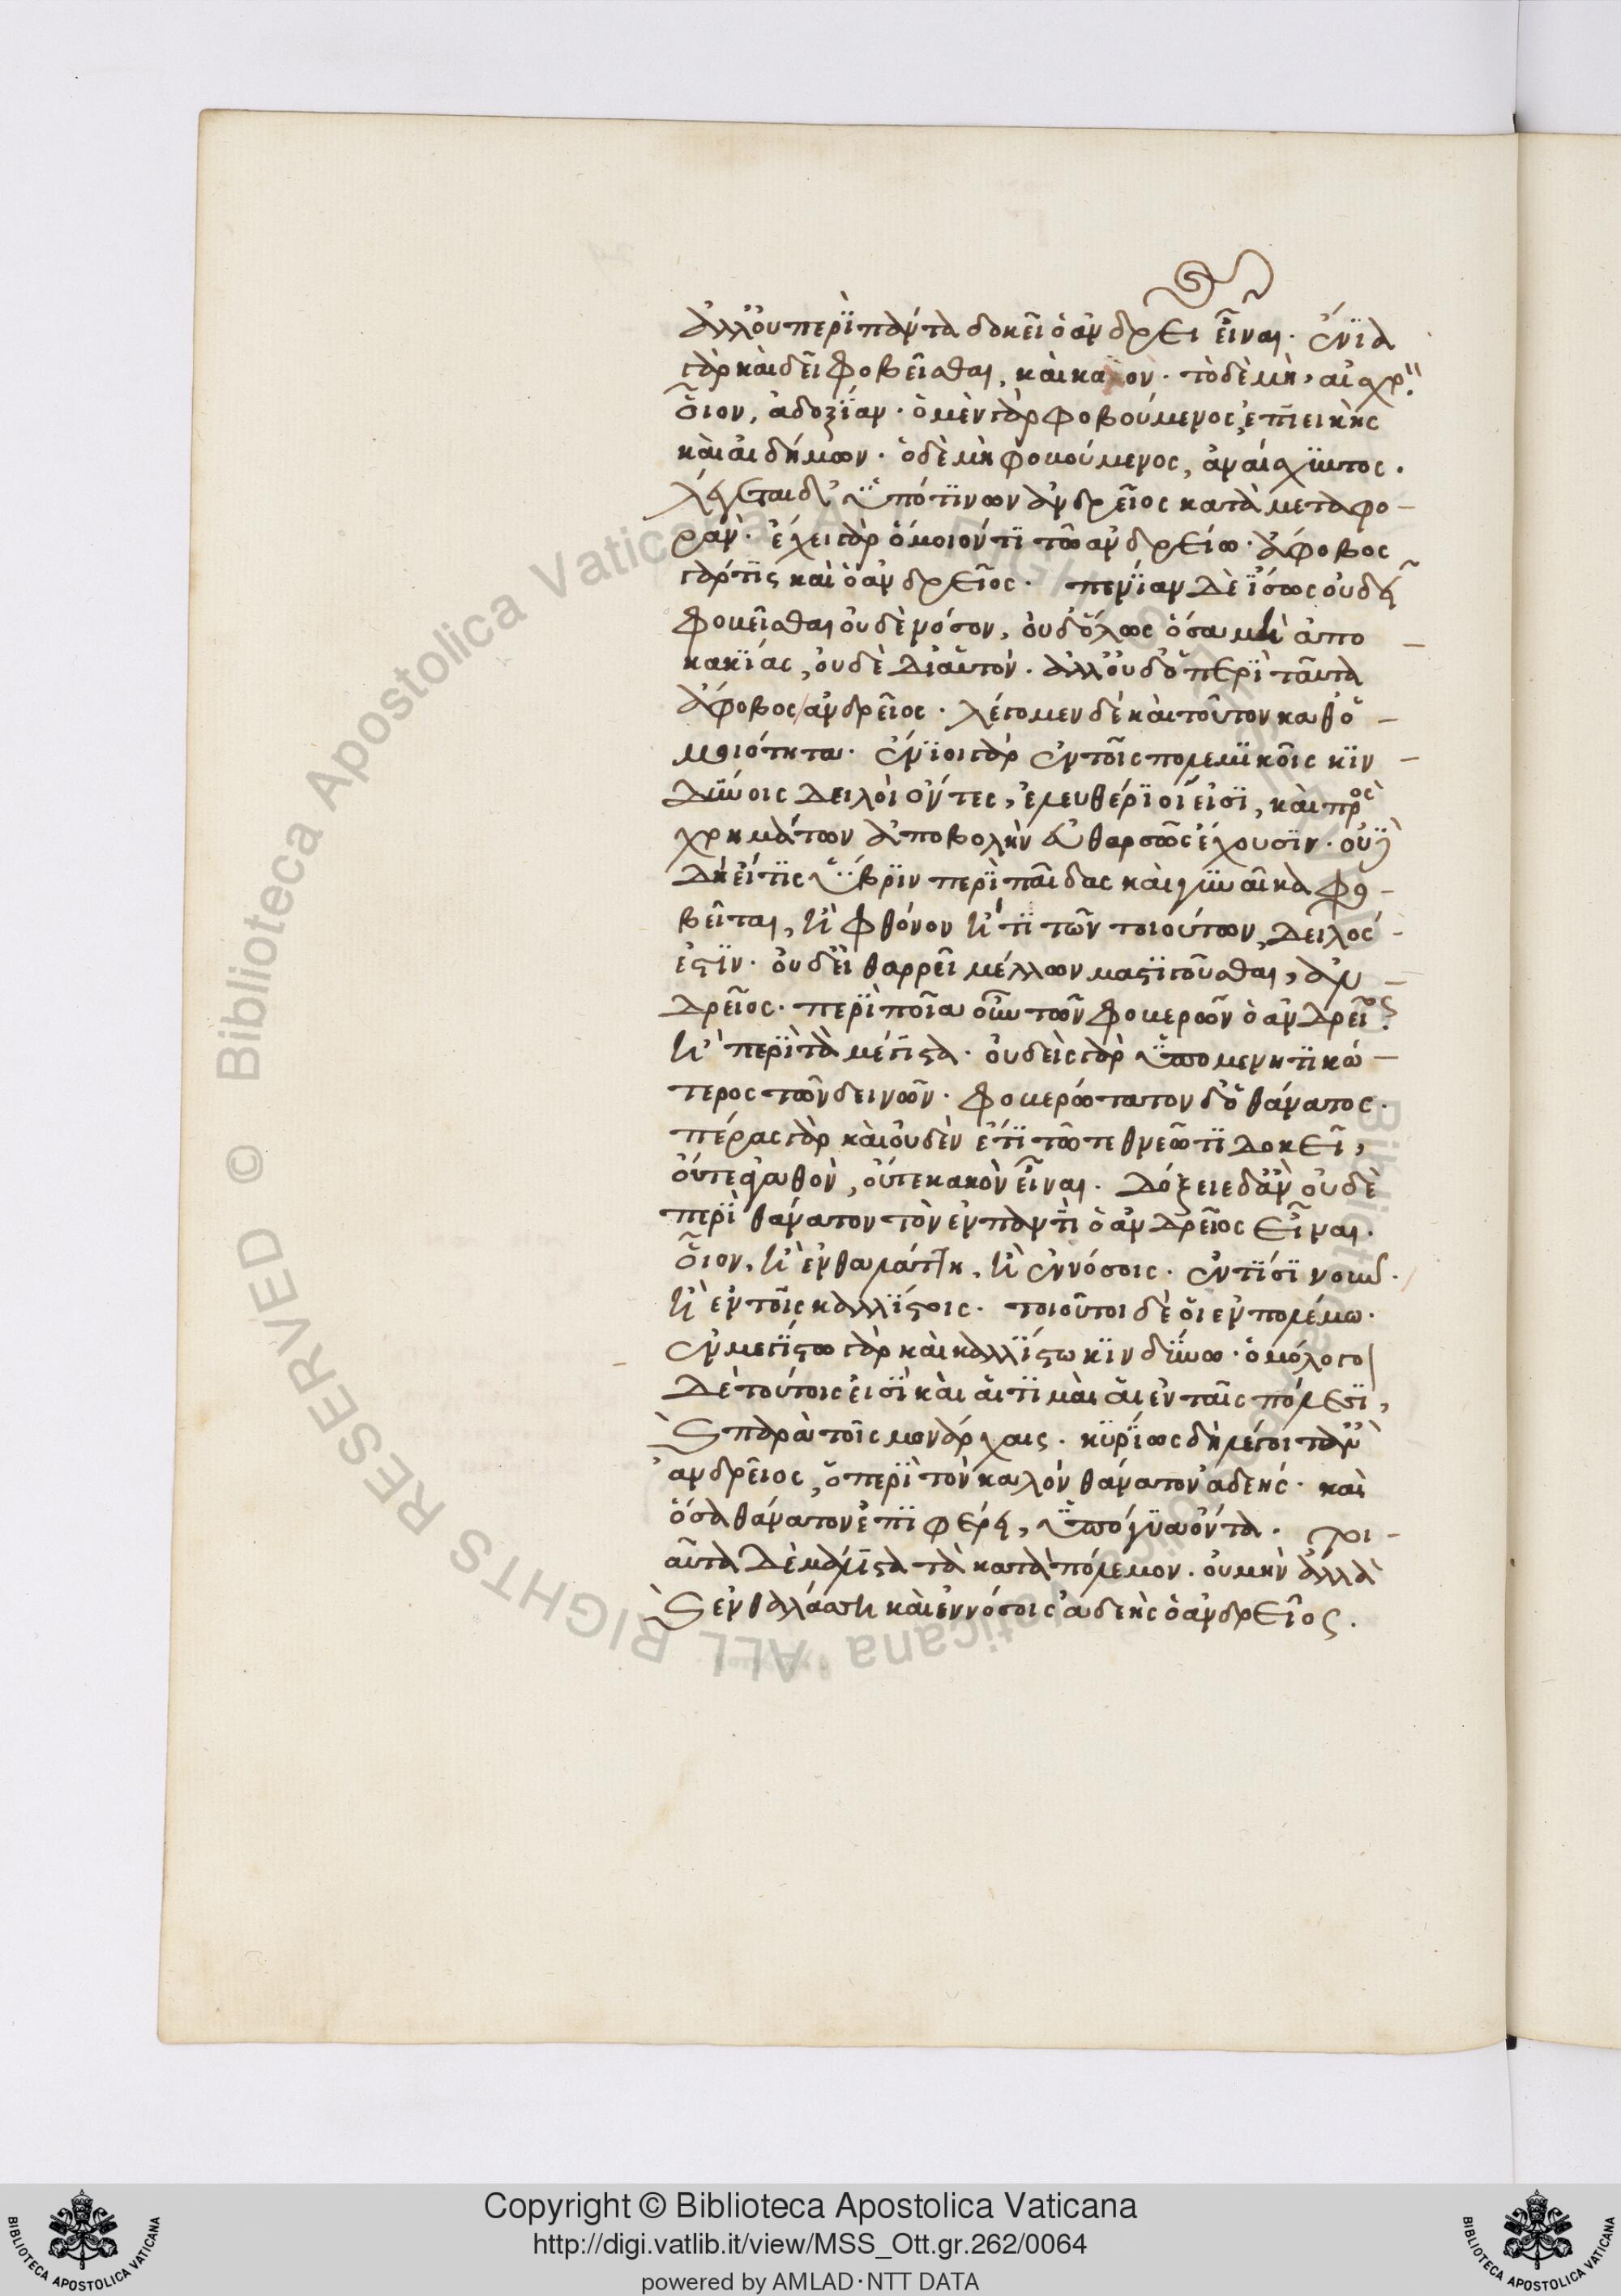 ἀλλ' οὐ περὶ πάντα δοκεῖ ὁ ἀνδρεῖ εἶναι. ἔνια
γὰρ καὶ δεῖ φοβεῖσθαι, καὶ καλὸν. τὸ δὲ μὴ, αἰσχρ.
οἷον, ἀδοξίαν. ὁ μὲν γὰρ φοβούμενος, ἐπιεικὴς
καὶ αἰδήμων. ὁ δὲ μὴ φοβούμενος, ἀναίσχυντος.
λέγεται δ' ὑπό τινων ἀνδρεῖος κατὰ μεταφο-
ράν. ἔχει γὰρ ὅμοιόν τι τῶ ἀνδρείω. ἄφοβος
γάρ τις καὶ ὁ ἀνδρεῖος. πενίαν δὲ ἴσως οὐ δεῖ
φοβεῖσθαι οὐδὲ νόσον, οὐδ' ὅλως ὅσα μὴ ἀπο
κακίας, οὐδὲ δι' αὑτόν. ἀλλ' οὐδ' ὁ περὶ ταῦτα
ἄφοβος ἀνδρεῖος. λέγομεν δὲ καὶ τοῦτον καθ' ὁ
μοιότητα. ἔνιοι γὰρ ἐν τοῖς πολεμικοῖς κιν
δύνοις δειλοὶ ὄντες, ἐλευθέριοί εἰσι, καὶ πρὸς
χρημάτων ἀποβολὴν εὐθαρσῶς ἔχουσιν. οὐ
δὴ εἴ τις ὕβριν περὶ παῖδας καὶ γυναῖκα φο-
βεῖται, ἢ φθόνον ἤ τι τῶν τοιούτων, δειλός
ἐστιν. οὐδ' εἰ θαρρεῖ μέλλων μαστιγοῦσθαι, ἀν
δρεῖος. περὶ ποῖα οὖν τῶν φοβερῶν ὁ ἀνδρεῖος.
ἢ περὶ τὰ μέγιστα. οὐδεὶς γὰρ ὑπομενητικώ
τερος τῶν δεινῶν. φοβερώτατον δ' ὁ θάνατος.
πέρας γὰρ καὶ οὐδὲν ἔτι τῶ τεθνεῶτι δοκεῖ,
οὔτε ἀγαθὸν, οὔτε κακὸν εἶναι. δόξειε δ' ἂν οὐδὲ
περὶ θάνατον τὸν ἐν παντὶ ὁ ἀνδρεῖος εἶναι.
οἷον, ἢ ἐν θαλάττη, ἢ ἐν νόσοις. ἐν τίσιν οὖν.
ἢ ἐν τοῖς καλλίστοις. τοιοῦτοι δὲ οἱ ἐν πολέμω.
ἐν μεγίστω γὰρ καὶ καλλίστω κινδύνω. ὁμόλογοι
δὲ τούτοις εἰσὶ καὶ αἱ τιμαὶ αἱ ἐν ταῖς πόλεσι,
καὶ παρὰ τοῖς μονάρχαις. κυρίως δὴ λέγοιτ' ἂν
ἀνδρεῖος, ὁ περὶ τὸν καλὸν θάνατον ἀδεής. καὶ
ὅσα θάνατον ἐπιφέρει, ὑπόγυα ὄντα. τοι-
αῦτα δὲ μάλιστα τὰ κατὰ πόλεμον. οὐ μὴν ἀλλὰ
καὶ ἐν θαλάσση καὶ ἐν νόσοις ἀδεὴς ὁ ἀνδρεῖος.
© Biblioteca Apostolica Vaticana ALL RIGHTS RESERVED
Copyright © Biblioteca Apostolica Vaticana
http://digi.vatlib.it/view/MSS_Ott.gr.262/0064
powered by AMLAD·NTT DATA
BIBLIOTECA APOSTOLICA VATICANA
BIBLIOTECA APOSTOLICA VATICANA